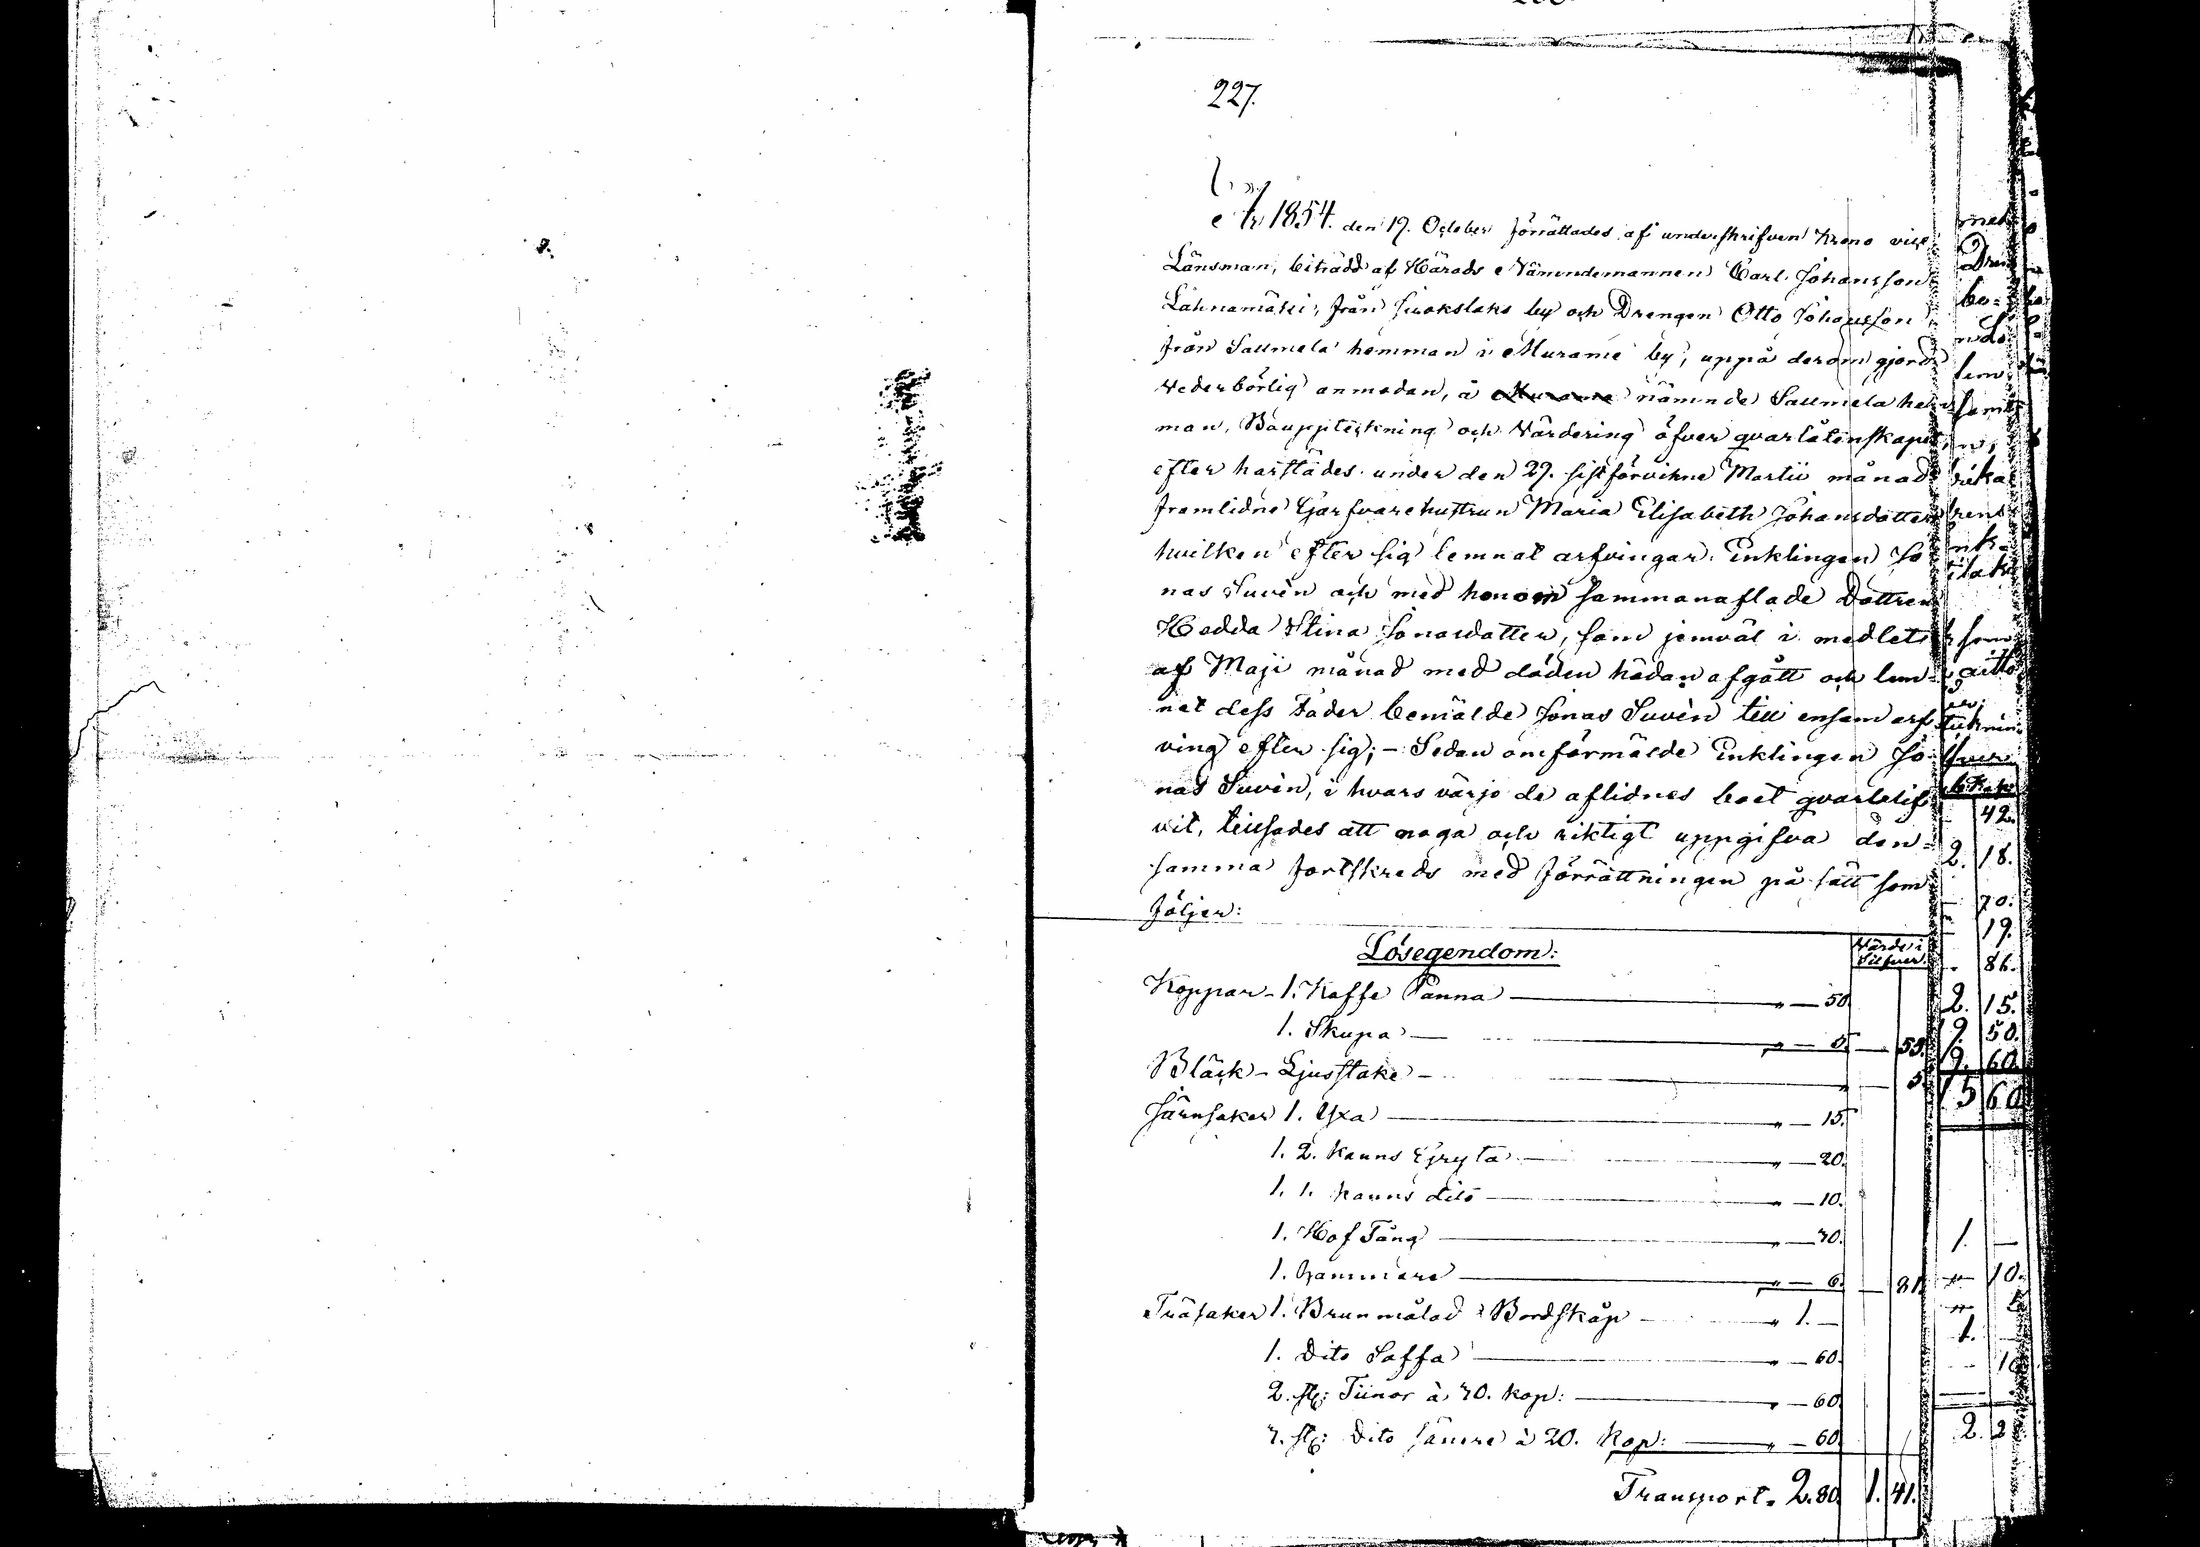 227.
År 1854. den 19. October förrättades af underskrifven Krono vice
Länsman, biträdd af Härads Nämndemannen Carl Johansson
Lähnamäki, från Suokslaks by och Drengen Otto Johansson
från Saumela hemman i Murame by, uppå derom gjord
vederbörlig anmodan, å nämnde Saumela hem
man, Bouppteckning och Värdering öfver qvarlåtenskapet,
efter härstädes under den 29. sistförvikne Martii månad
framlidne Garfvarehustrun Maria Elisabeth Johansdotter
hvilken efter sig lemnat arfvingar: Enklingen Jo
nas Suvèn och med honom sammanaflade Dottren
Hedda Stina Jonasdotter, som jemväl i medlet
af Maji månad med döden hädan afgått och lem-
nat dess Fader bemälde Jonas Suvèn till ensam arf
ving efter sig; - Sedan omförmälde Enklingen Jo-
nas Suvèn, i hvars värjo de aflidnes boet qvarblif
vit, tillsades att noga och riktigt uppgifva den-
samma fortskreds med förrättningen på sätt som
följer:
Lösegendom: Värde i Silfver.
Koppar - 1. Kaffe Panna " — 50.
1. Skupa " — 5. — 55.
Bläck - Ljusstake - " 5.
Järnsaker 1. Yxa " — 15.
1. 2. Kanns Gryta " — 20.
1. 1. Kanns dito " — 10.
1. Hof Tång " — 30.
1. hammare " — 6. — 81.
Träsaker 1. Brunmålad Bordskåp " 1. —
1. Dito Saffa " — 60.
2. st: Tiinor à 30. kop: " — 60.
3. st: Dito sämre à 20. Kop: " — 60.
Transport. 2.80. 1. 41.
42.
2. 18.
70.
19.
86.
2. 15.
9. 50.
9. 60.
15 60
1. —
10.
1.
2.